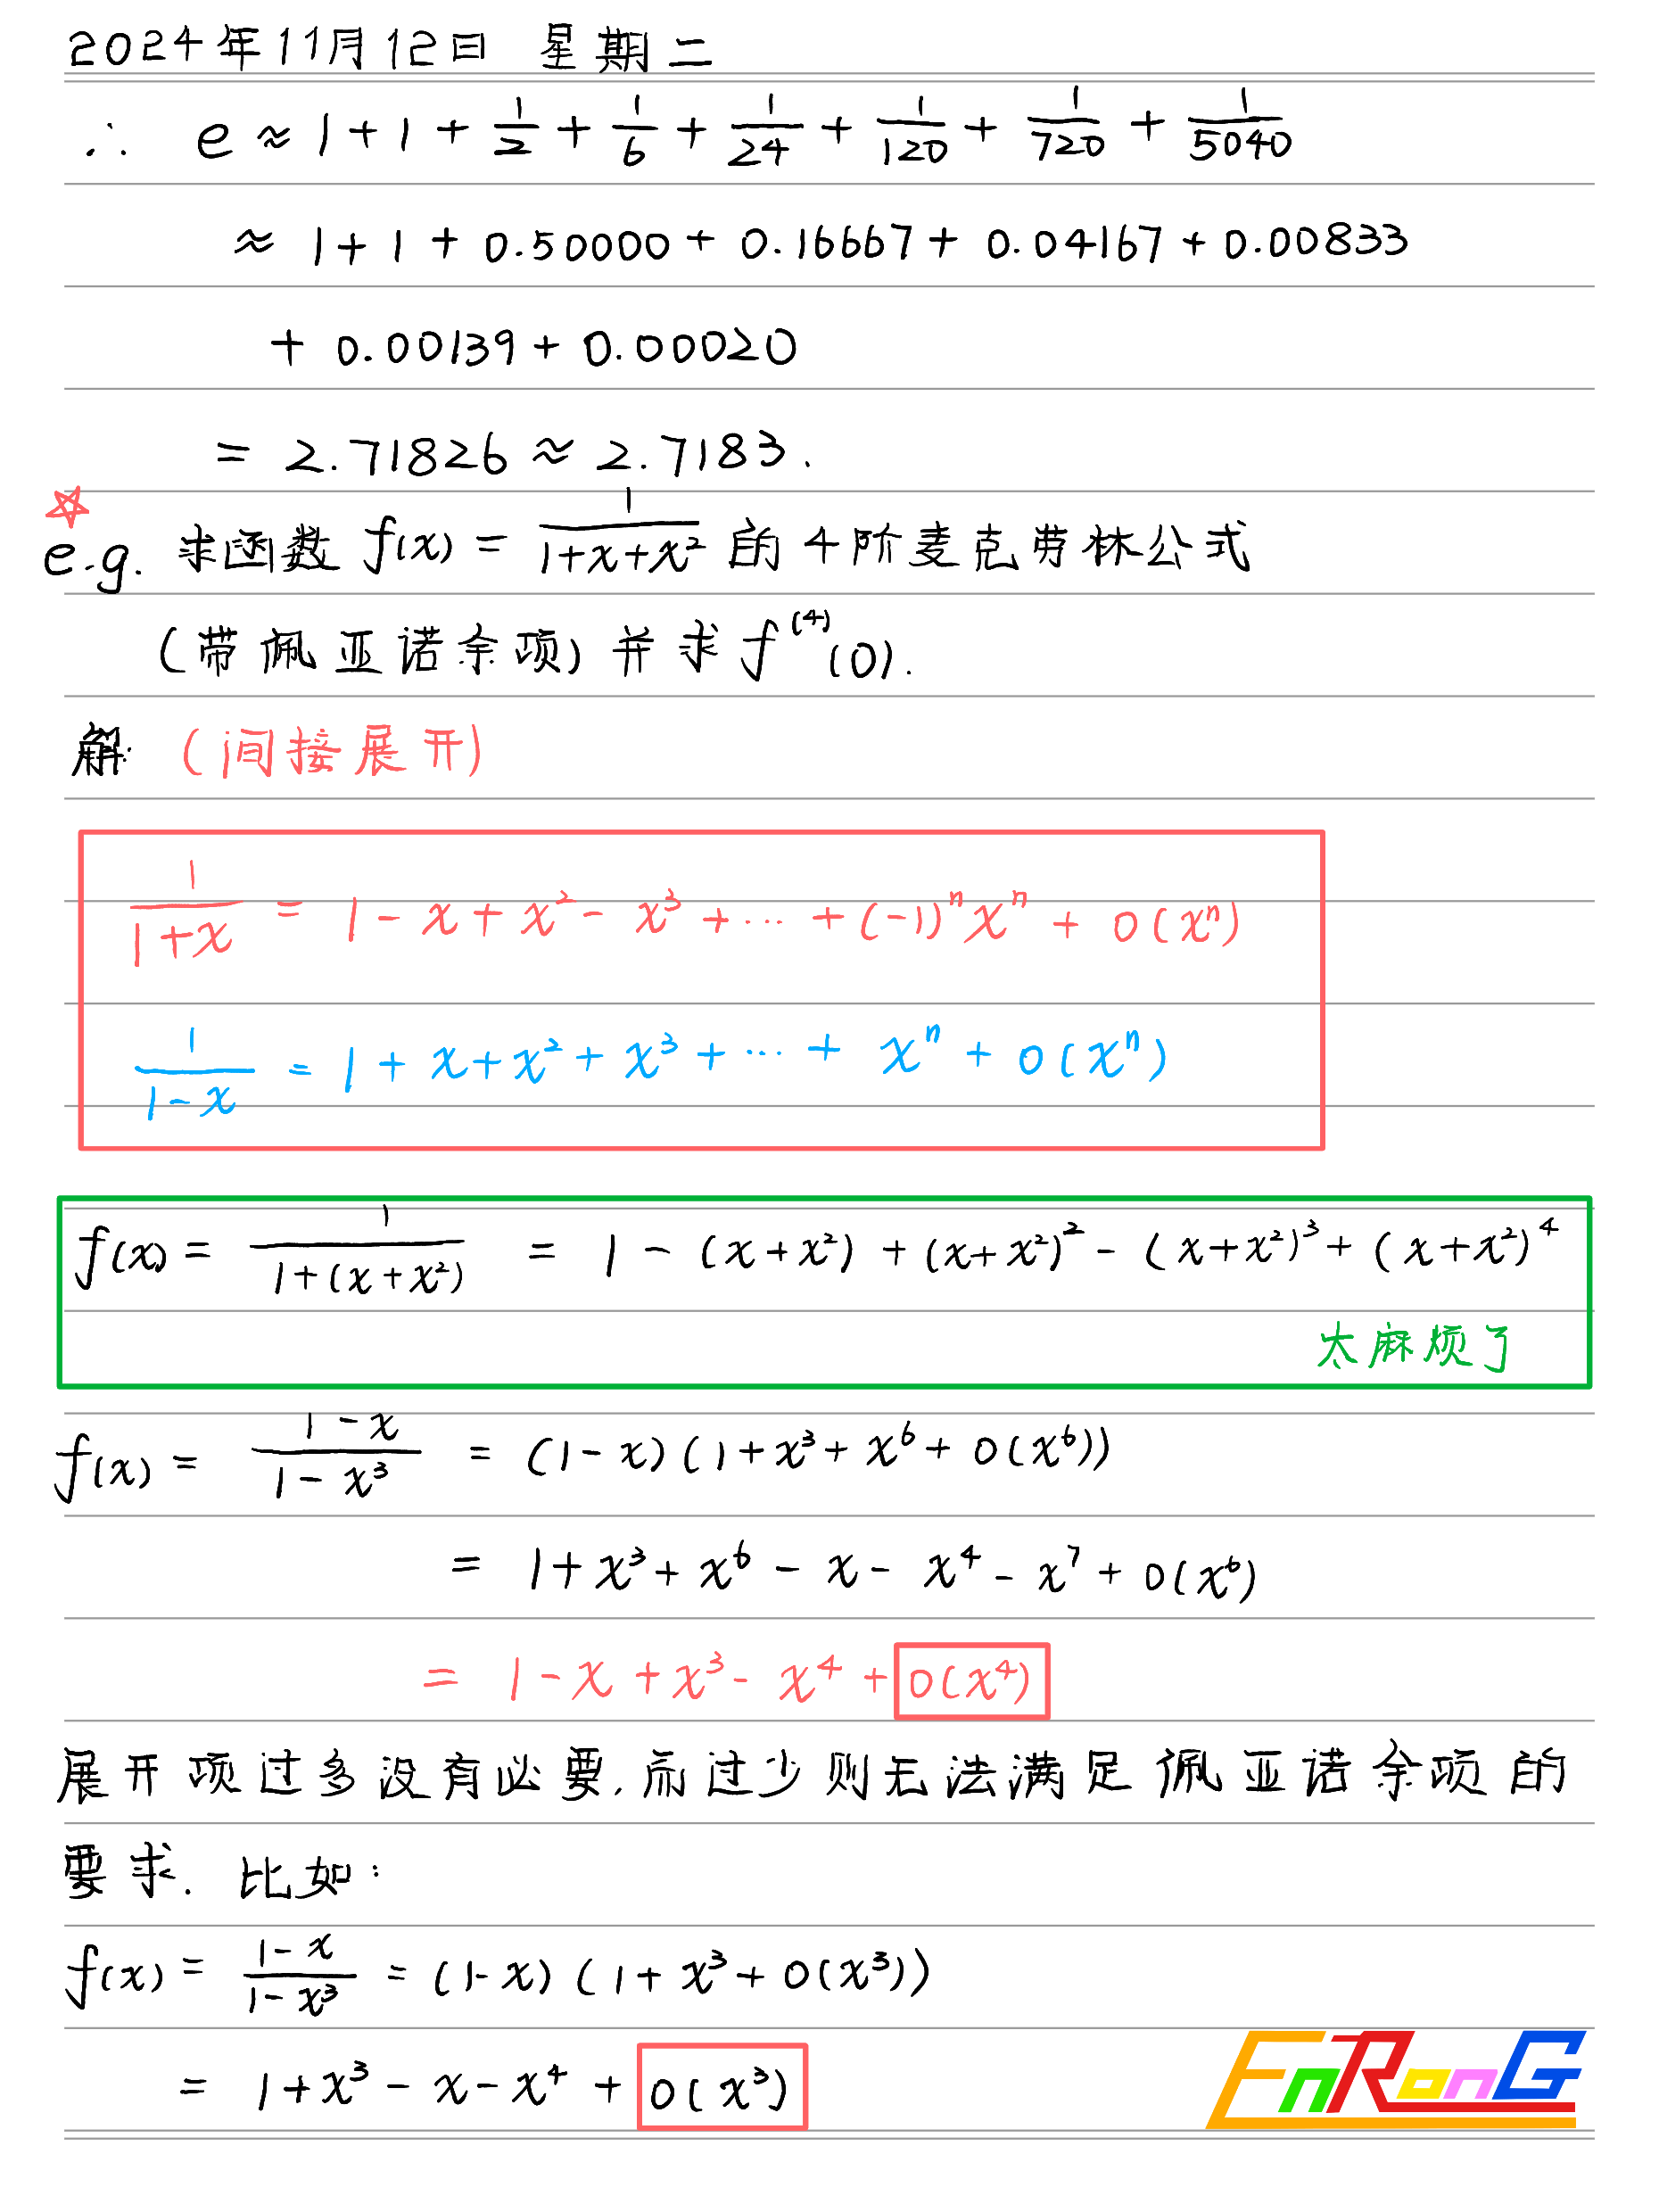 2024年11月12日 星期二
∴ e ≈ 1 + 1 + 1/2 + 1/6 + 1/24 + 1/120 + 1/720 + 1/5040
≈ 1 + 1 + 0.50000 + 0.16667 + 0.04167 + 0.00833
+ 0.00139 + 0.00020
= 2.71826 ≈ 2.7183.
☆
e.g. 求函数 f(x) = 1/(1+x+x²) 的 4 阶麦克劳林公式
(带佩亚诺余项) 并求 f⁽⁴⁾(0).
解: (间接展开)
1/(1+x) = 1 - x + x² - x³ + ⋯ + (-1)ⁿxⁿ + o(xⁿ)
1/(1-x) = 1 + x + x² + x³ + ⋯ + xⁿ + o(xⁿ)
f(x) = 1/(1+(x+x²)) = 1 - (x+x²) + (x+x²)² - (x+x²)³ + (x+x²)⁴
太麻烦了
f(x) = (1-x)/(1-x³) = (1-x)(1+x³+x⁶+o(x⁶))
= 1 + x³ + x⁶ - x - x⁴ - x⁷ + o(x⁶)
= 1 - x + x³ - x⁴ + o(x⁴)
展开项过多没有必要,而过少则无法满足佩亚诺余项的
要求. 比如:
f(x) = (1-x)/(1-x³) = (1-x)(1+x³+o(x³))
= 1 + x³ - x - x⁴ + o(x³)
EnRonG